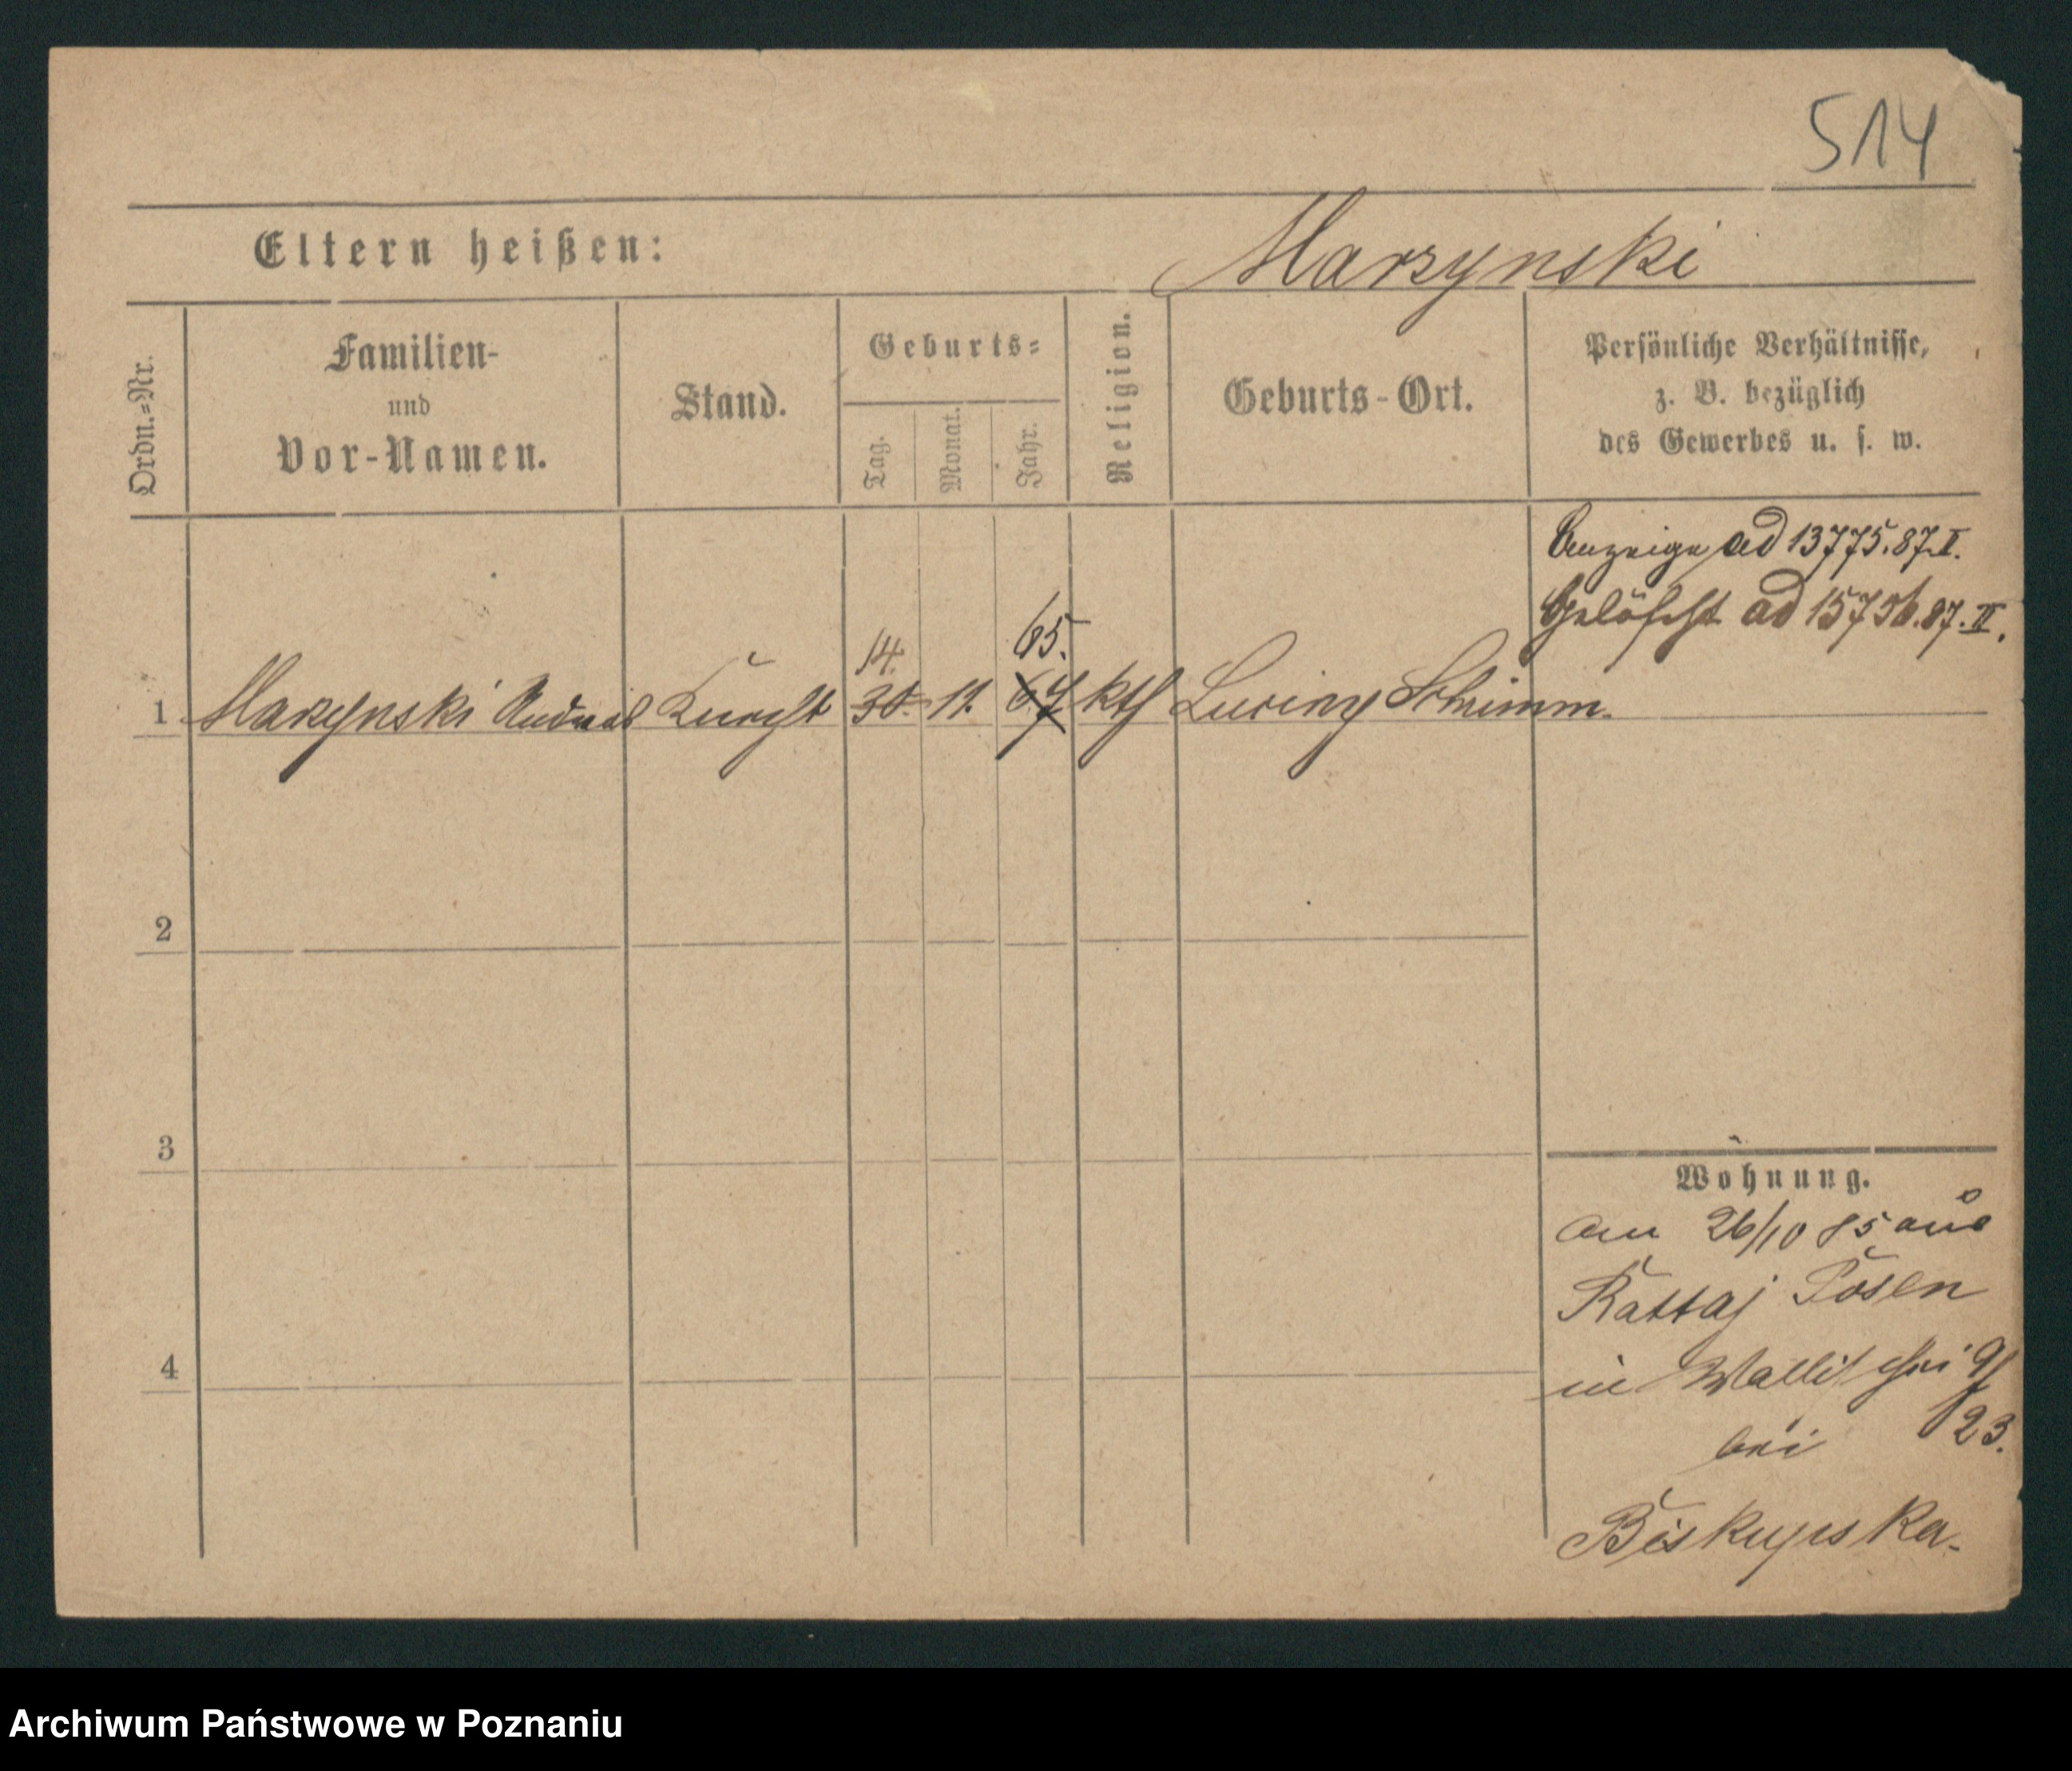 514
Eltern heißen:
Marzynski
Ordn.=Nr.
Familien-
und
Vor-Namen.
Stand.
Geburts=
Tag.
Monat.
Jahr.
Religion.
Geburts-Ort.
Persönliche Verhältnisse,
z. B. bezüglich
des Gewerbes u. s. w.
Anzeige ad 13775.87.I.
Gelöscht ad 15756.87.II.
14.
65.
1 Marzynski Andreas Knecht 30. 11. 67 kth Luciny Schrimm.
2
3
4
Wohnung.
am 26/10 85 aus
Rattaj Posen
in Wallischei 9/
123.
bei
Biskupska.
Archiwum Państwowe w Poznaniu